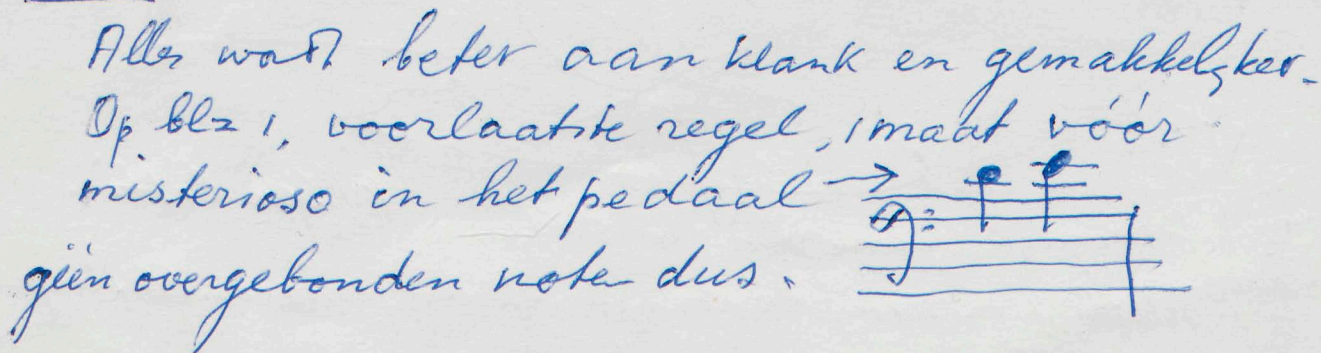 Alles wordt beter aan klank en gemakkelijker.
Op blz 1, voorlaatste regel, 1 maat vóór
misterioso in het pedaal →
géén overgebonden noten dus.